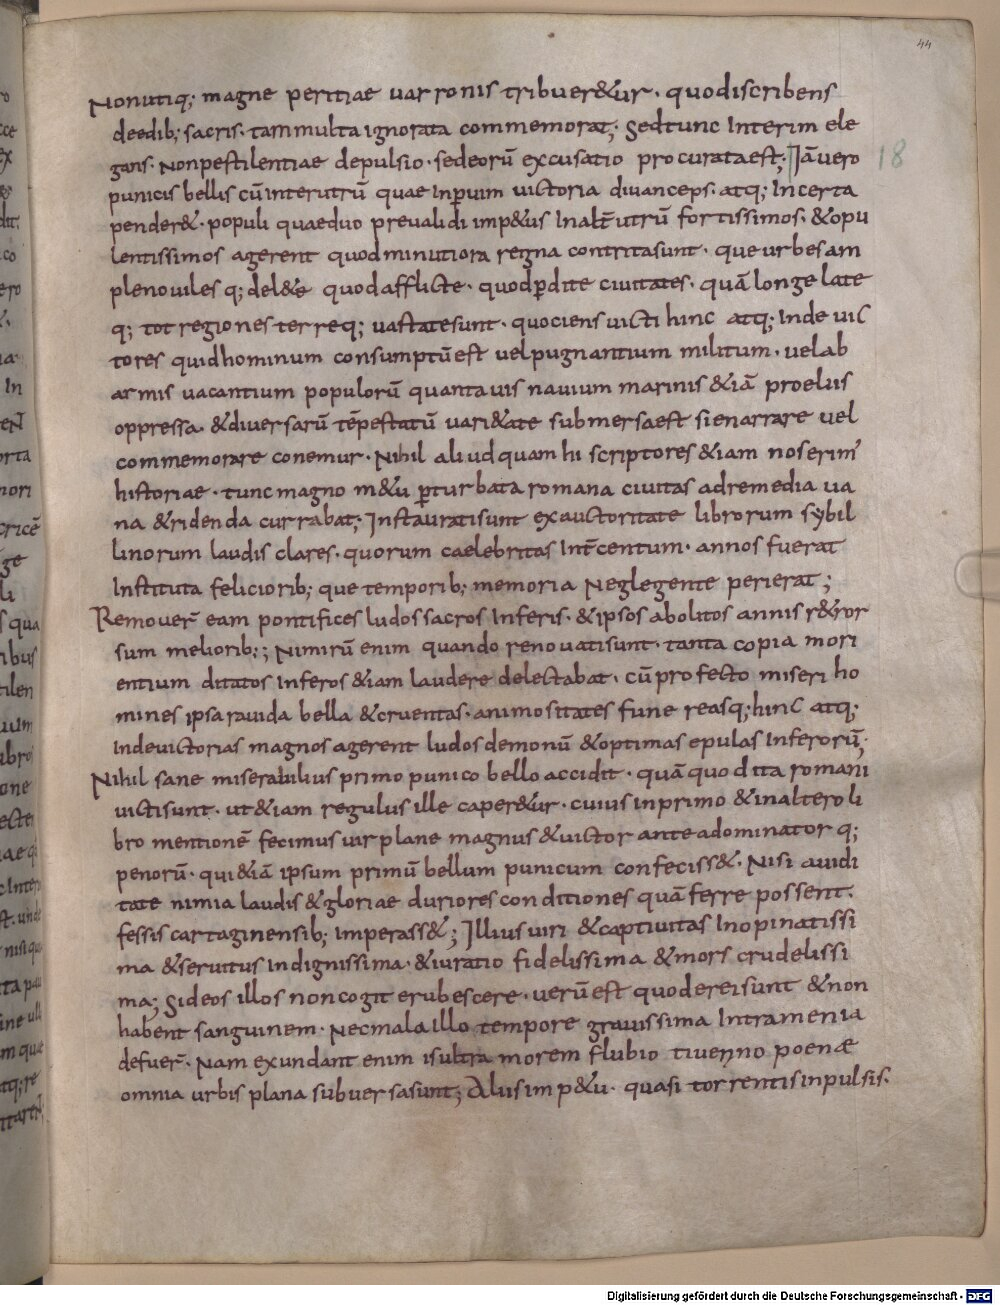 44
Nonutiq; magne peritiae uarronis tribuer&ur · quodiscribens
deedib; sacris · tammulta ignorata commemorat; Sedtunc Interim ele
gans · Nonpestilentiae depulsio · sedeorū excusatio procurataest; Iāuero
18
punicis bellis cūinterutrū quae Inperium uictoria diuanceps · atq; Incerta
pender& · populi quaeduo preualidi imp&us Inalt̄utrū fortissimos · &opu
lentissimos agerent quodminutiora regna contritasunt · queurbesam
plenouiles q; del&e quodafflicte · quodp̄dite ciuitates · quā longe late
q; totregiones terreq; uastatesunt · quociens uicti hinc atq; Inde uic
tores quidhominum consumptūest uelpugnantium militum · uelab
armis uacantium populorū quantauis nauium marinis &iā proeliis
oppressa · &diuersarū tēpestatū uari&ate submersaest sienarrare uel
commemorare conemur · Nihil aliudquam hi scriptores &iam noserim'
historiae · tunc magno m&u p̄turbata romana ciuitas adremedia ua
na &ridenda currabat; Instauratisunt exauctoritate librorum sybil
linorum laudis clares · quorum caelebritas Int̄centum · annos fuerat
Instituta feliciorib; que temporib; memoria Neglegente perierat;
Remouer̄ eam pontifices ludos sacros Inferis · &ipsos abolitos annis r&ror
sum meliorib:; Nimirū enim quando renouatisunt · tanta copia mori
entium ditatos Inferos &iam laudere delectabat · cūprofecto miseri ho
mines ipsa rauida bella &cruentas · animositates fune reasq; hinc atq;
Indeuictorias magnos agerent ludos demonū &optimas epulas Inferorū;
Nihil sane miserabilius primo punico bello accidit · quā quod ita romani
uictisunt · ut&iam regulus ille caper&ur · cuius inprimo &inaltero li
bro mentionē fecimus uir plane magnus &uictor ante adominator q;
penorū · qui&iā ipsum primū bellum punicum confeciss& · Nisi auidi
tate nimia laudis &gloriae duriores conditiones quā ferre possent ·
fessis cartaginensib; imperass&; Illius uiri &captiuitas Inopinatissi
ma &seruitus indignissima · &iuratio fidelissima &mors crudelissi
ma; Sideos illos noncogit erubescere · uerūest quodereisunt &non
habent sanguinem · Necmala illo tempore grauissima Intramenia
defuer̄ · Nam exundant enim isultra morem flubio tiuerino poenæ
omnia urbis plana subuersasunt; Aliis imp&u · quasi torrentis inpulsis ·
Digitalisierung gefördert durch die Deutsche Forschungsgemeinschaft - DFG